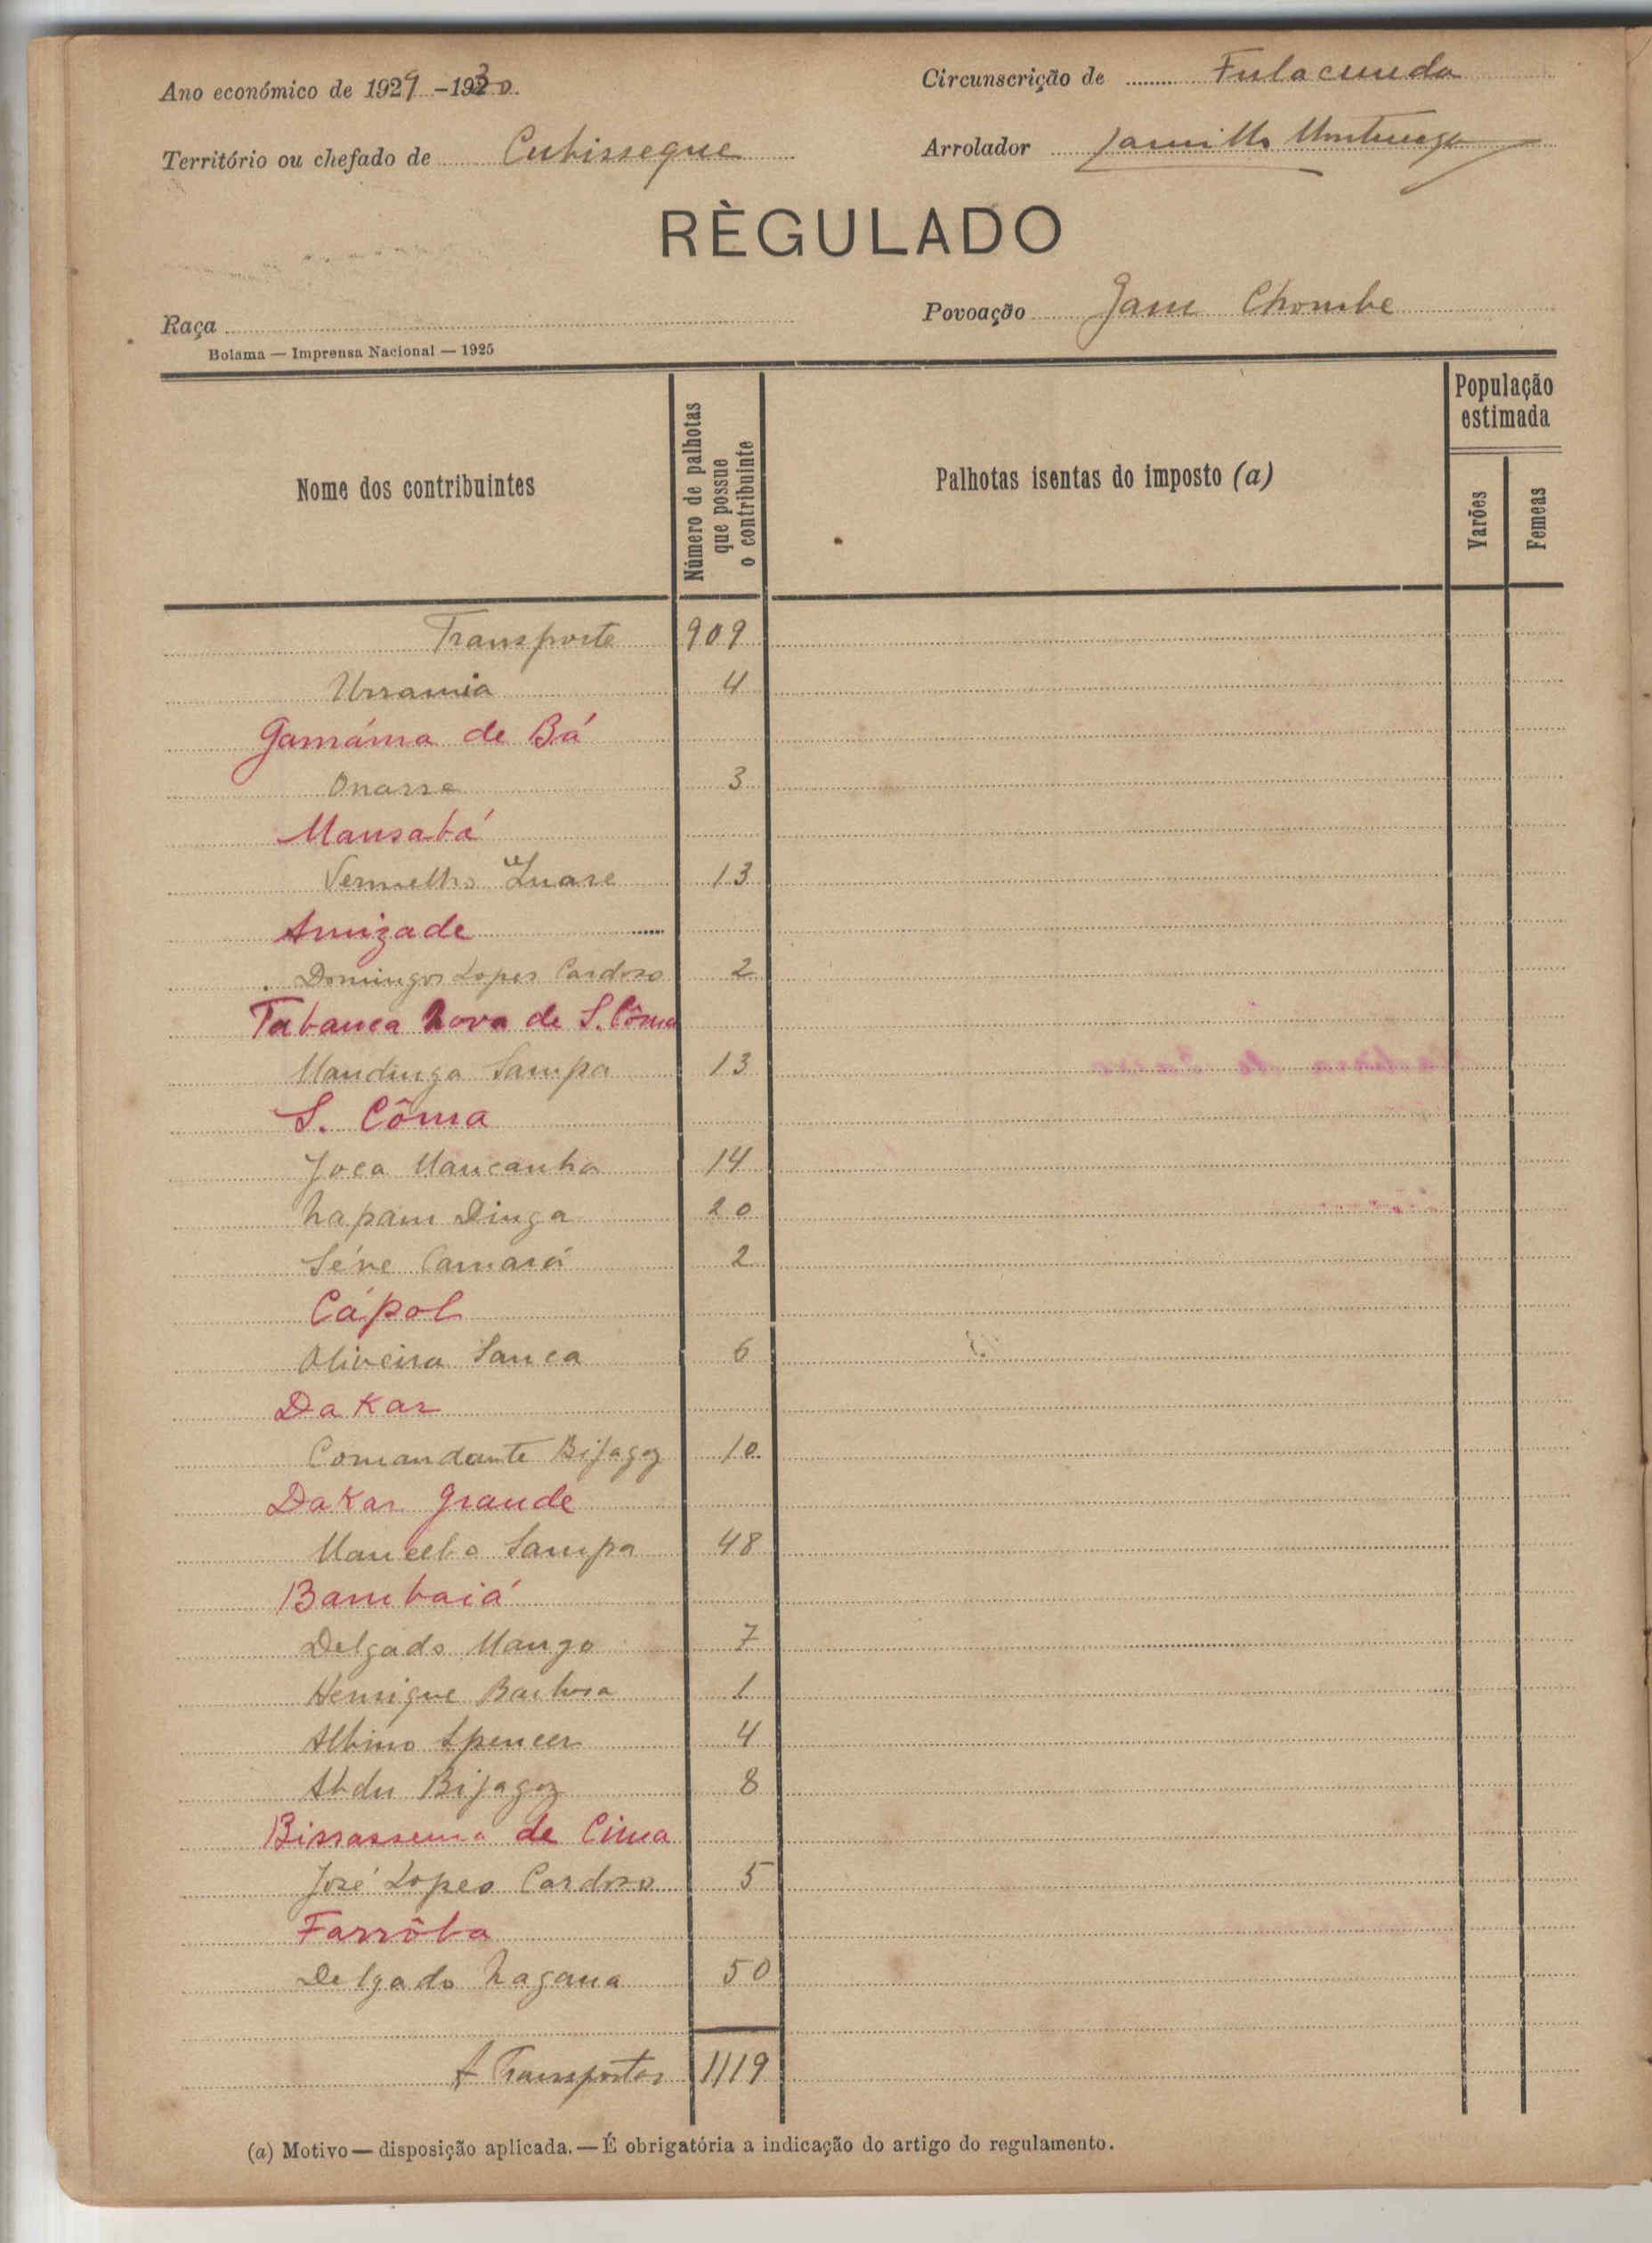 Ano económico de 1929-1930.
Circunscrição de Fulacunda
Território ou chefado de Cubisseque
Arrolador
RÈGULADO
Raça
Povoação Gam Chombe
Bolama — Imprensa Nacional — 1925
Nome dos contribuintes
Número de palhotas que possue o contribuinte
Palhotas isentas do imposto (a)
População estimada
Varões
Femeas
Transporte 909
Ussamia 4
Gamáma de Bá
Onasse 3
Mansabá
Vermelho 13
Amizade
Domingos Lopes Cardoso 2
Tabanca Nova de S. Côma
Mandinga Sampa 13
S. Côma
Joca Mancanha 14
Napam Dinga 20
Séne Camará 2
Cápol
Oliveira Sanca 6
Dakar
Comandante Bijagoz 10
Dakar Grande
Mancebo Sampa 48
Bambaiá
Delgado Mango 7
Henrique Barbosa 1
Albino Spencer 4
Abdu Bijagoz 8
Bissassema de Cima
José Lopes Cardoso 5
Farrôba
Delgado Nagana 50
A Transportar 1119
(a) Motivo — disposição aplicada. — É obrigatória a indicação do artigo do regulamento.